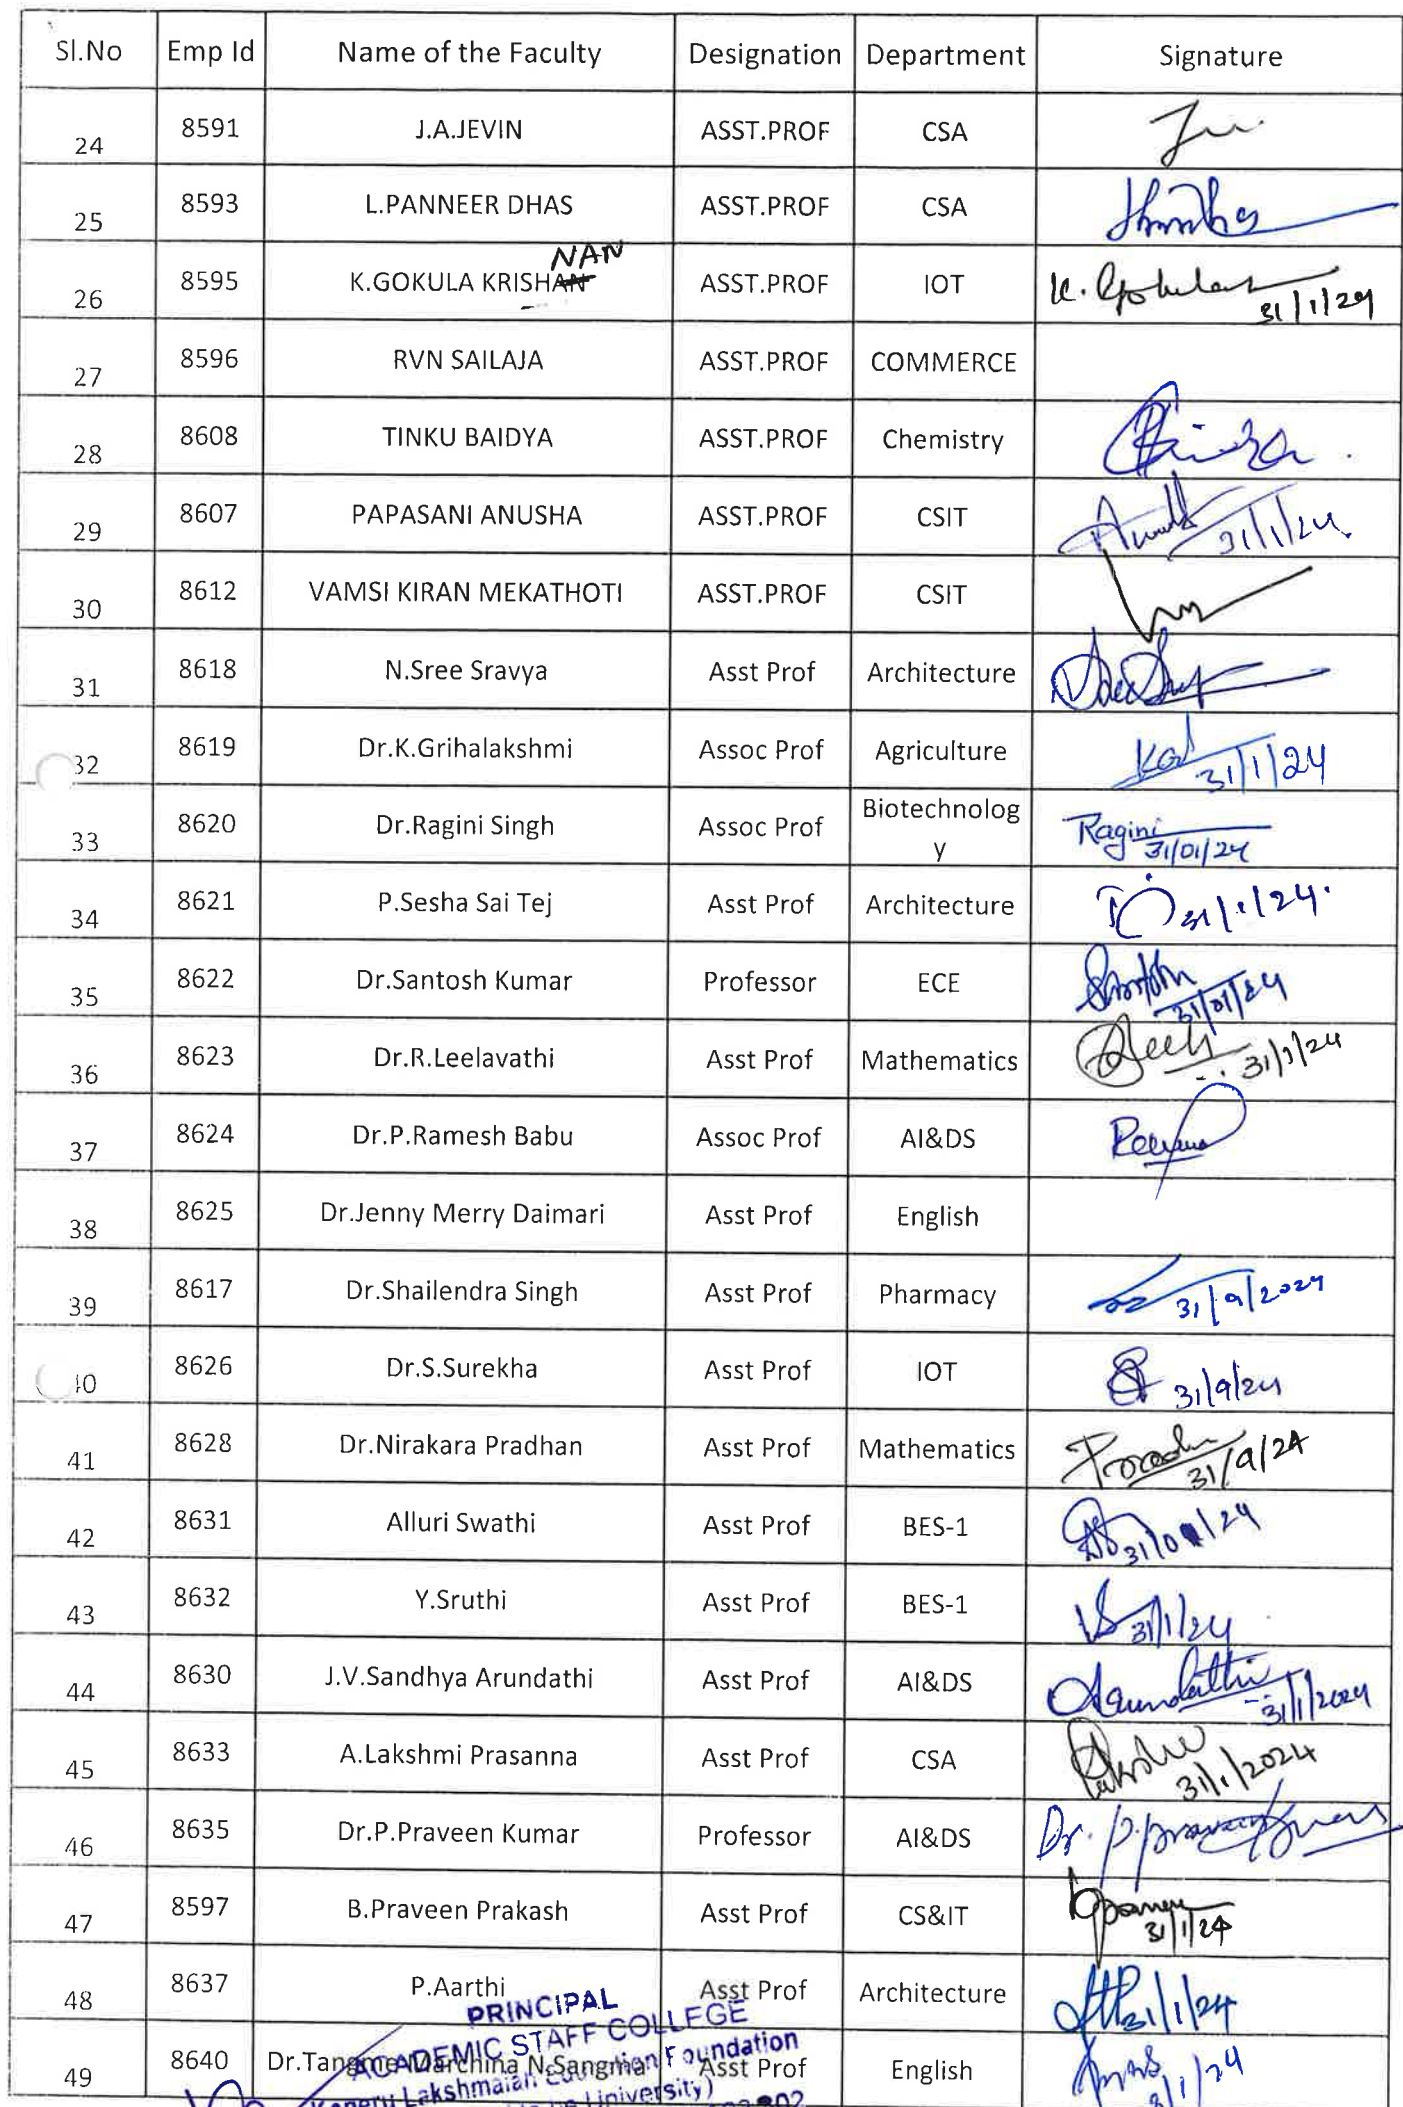 Sl.No Emp Id Name of the Faculty Designation Department Signature
24 8591 J.A.JEVIN ASST.PROF CSA
25 8593 L.PANNEER DHAS ASST.PROF CSA
NAN
26 8595 K.GOKULA KRISHAN ASST.PROF IOT K. Gokula 31/1/24
27 8596 RVN SAILAJA ASST.PROF COMMERCE
28 8608 TINKU BAIDYA ASST.PROF Chemistry
29 8607 PAPASANI ANUSHA ASST.PROF CSIT 31/1/24
30 8612 VAMSI KIRAN MEKATHOTI ASST.PROF CSIT
31 8618 N.Sree Sravya Asst Prof Architecture
32 8619 Dr.K.Grihalakshmi Assoc Prof Agriculture 31/1/24
33 8620 Dr.Ragini Singh Assoc Prof Biotechnolog
y Ragini 31/01/24
34 8621 P.Sesha Sai Tej Asst Prof Architecture 31/1/24.
35 8622 Dr.Santosh Kumar Professor ECE 31/01/24
36 8623 Dr.R.Leelavathi Asst Prof Mathematics 31/1/24
37 8624 Dr.P.Ramesh Babu Assoc Prof AI&DS
38 8625 Dr.Jenny Merry Daimari Asst Prof English
39 8617 Dr.Shailendra Singh Asst Prof Pharmacy 31/9/2024
40 8626 Dr.S.Surekha Asst Prof IOT 31/9/24
41 8628 Dr.Nirakara Pradhan Asst Prof Mathematics 31/9/24
42 8631 Alluri Swathi Asst Prof BES-1
43 8632 Y.Sruthi Asst Prof BES-1 31/1/24
44 8630 J.V.Sandhya Arundathi Asst Prof AI&DS 31/1/2024
45 8633 A.Lakshmi Prasanna Asst Prof CSA 31/1/2024
46 8635 Dr.P.Praveen Kumar Professor AI&DS Dr. P.Praveen Kumar
47 8597 B.Praveen Prakash Asst Prof CS&IT 31/1/24
48 8637 P.Aarthi Asst Prof Architecture 31/1/24
PRINCIPAL
ACADEMIC STAFF COLLEGE
49 8640 Dr.Tangme Marchina N.Sangma Asst Prof English
Lakshmaiah Education Foundation
University)